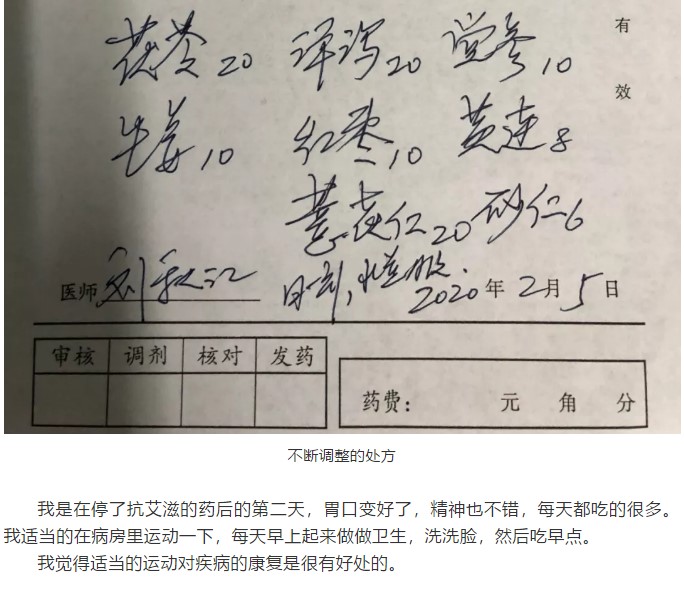 茯苓20 泽泻20 党参10
有效
生姜10 红枣10 黄连8
薏苡仁20 砂仁6
医师 日剂,水煎服. 2020年2月5日
审核 调剂 核对 发药
药费: 元 角 分
不断调整的处方
我是在停了抗艾滋的药后的第二天，胃口变好了，精神也不错，每天都吃的很多。
我适当的在病房里运动一下，每天早上起来做做卫生，洗洗脸，然后吃早点。
我觉得适当的运动对疾病的康复是很有好处的。